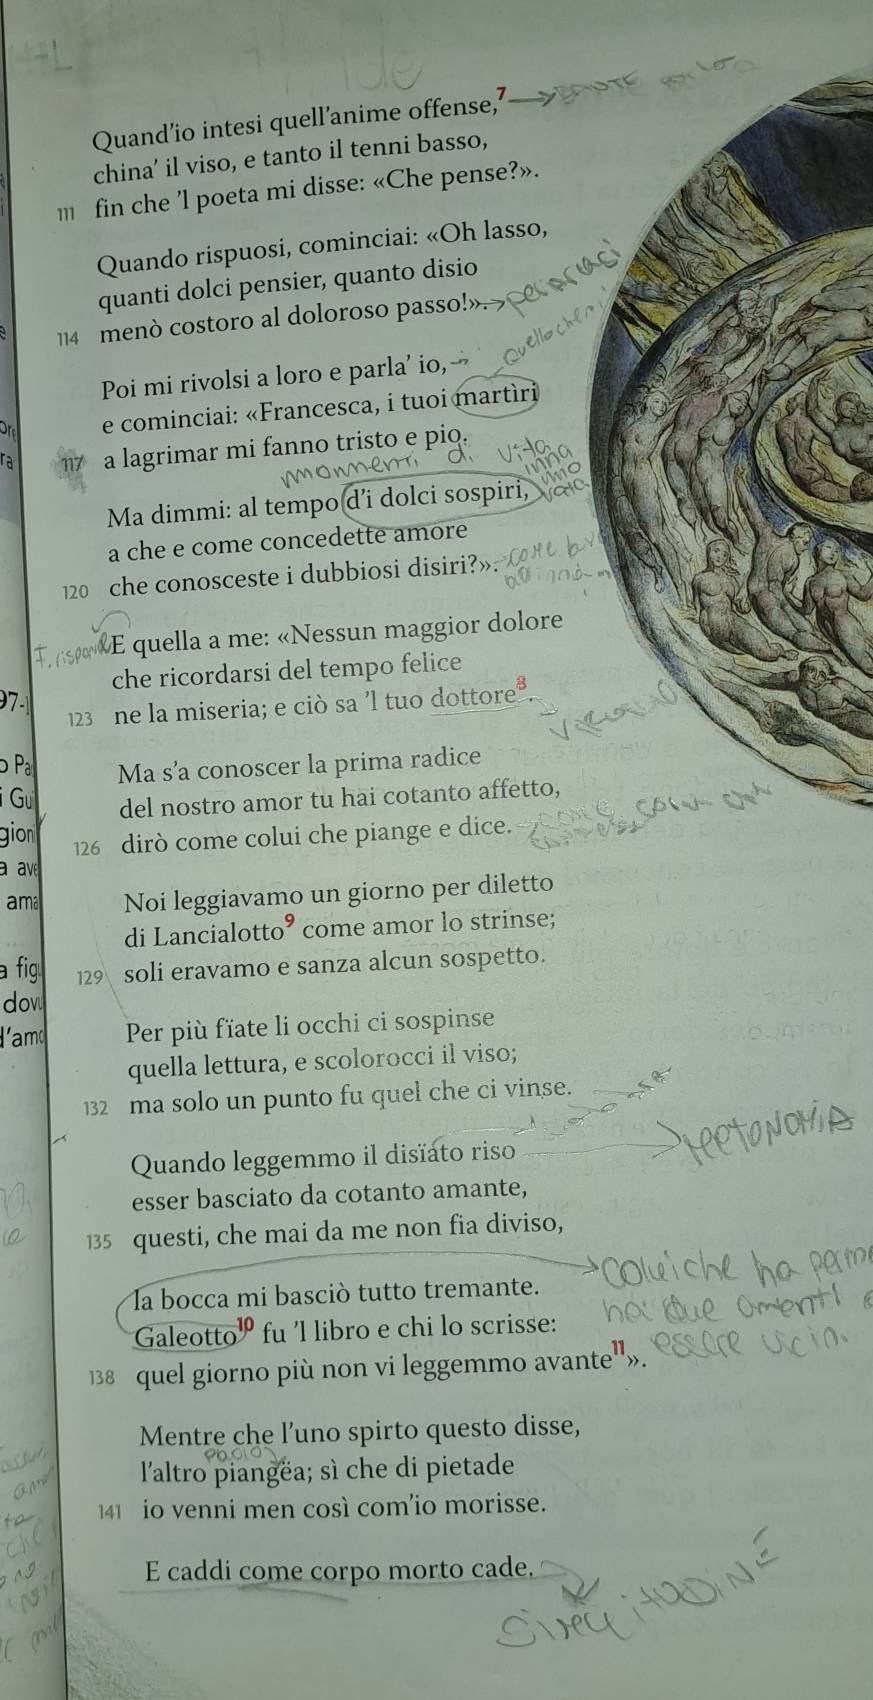 Quand'io intesi quell'anime offense,⁷
DANTE
china' il viso, e tanto il tenni basso,
111 fin che 'l poeta mi disse: «Che pense?».
Quando rispuosi, cominciai: «Oh lasso,
quanti dolci pensier, quanto disio
114 menò costoro al doloroso passo!».
Poi mi rivolsi a loro e parla' io,
e cominciai: «Francesca, i tuoi martìri
117 a lagrimar mi fanno tristo e pio.
momenti di vita
Ma dimmi: al tempo d'i dolci sospiri,
a che e come concedette amore
120 che conosceste i dubbiosi disiri?».
come
E quella a me: «Nessun maggior dolore
che ricordarsi del tempo felice
123 ne la miseria; e ciò sa 'l tuo dottore⁸.
Ma s'a conoscer la prima radice
del nostro amor tu hai cotanto affetto,
126 dirò come colui che piange e dice.
Noi leggiavamo un giorno per diletto
di Lancialotto⁹ come amor lo strinse;
129 soli eravamo e sanza alcun sospetto.
Per più fïate li occhi ci sospinse
quella lettura, e scolorocci il viso;
132 ma solo un punto fu quel che ci vinse.
Quando leggemmo il disïato riso
esser basciato da cotanto amante,
135 questi, che mai da me non fia diviso,
colui che ha
la bocca mi basciò tutto tremante.
Galeotto¹⁰ fu 'l libro e chi lo scrisse:
138 quel giorno più non vi leggemmo avante¹¹».
essere vicin.
Mentre che l'uno spirto questo disse,
Paolo
l'altro piangëa; sì che di pietade
141 io venni men così com'io morisse.
E caddi come corpo morto cade.
97-1
o Pa
i Gu
gion
a ave
ama
a figu
dovu
l'amo